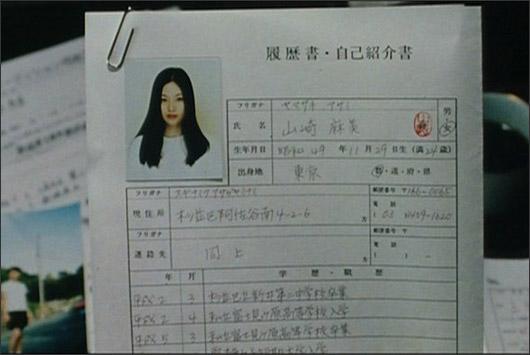 履歴書・自己紹介書
フリガナ ヤマザキ アサミ
氏名 山崎 麻美 男 女
生年月日 昭和49年11月29日生(満24歳)
出身地 東京 都・道・府・県
フリガナ スギナミク アサガヤミナミ 郵便番号 〒166-0065
現住所 杉並区阿佐谷南4-2-6 電話
フリガナ 郵便番号 〒
連絡先 同上 電話
年 月 学歴・職歴
平成2 3 杉並区立新井第二中学校卒業
平成2 4 私立富士見ヶ原高等学校入学
平成5 3 私立富士見ヶ原高等学校卒業